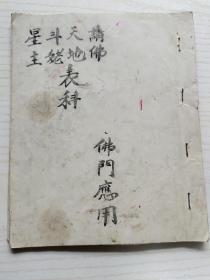 請佛
天地表科
斗姥
星主
佛門應用